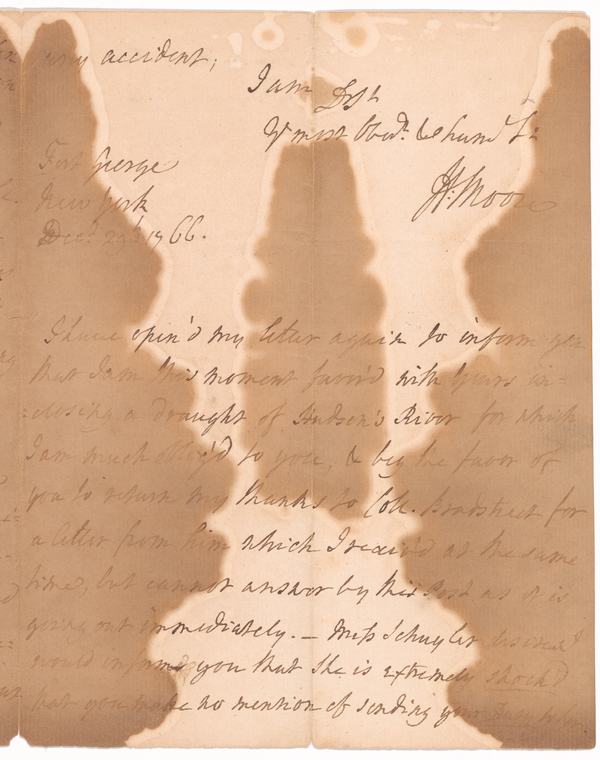 any accident;
I am Dr Sr
Yr most Obedt. & hum
H: Moore
Fort George
New York
Decr. 29th 1766.
I have open'd my letter again to inform you
that I am this moment favor'd with Yours in=
=closing a draught of Hudson's River for which
I am much oblig'd to you, & beg the favor of
you to return my thanks to Coll. Bradstreet for
a letter from him which I receiv'd at the same
time, but cannot answer by this Post as it is
going out immediately. — Miss Schuyler desired I
would inform you that she is extremely shock'd
that you make no mention of sending your